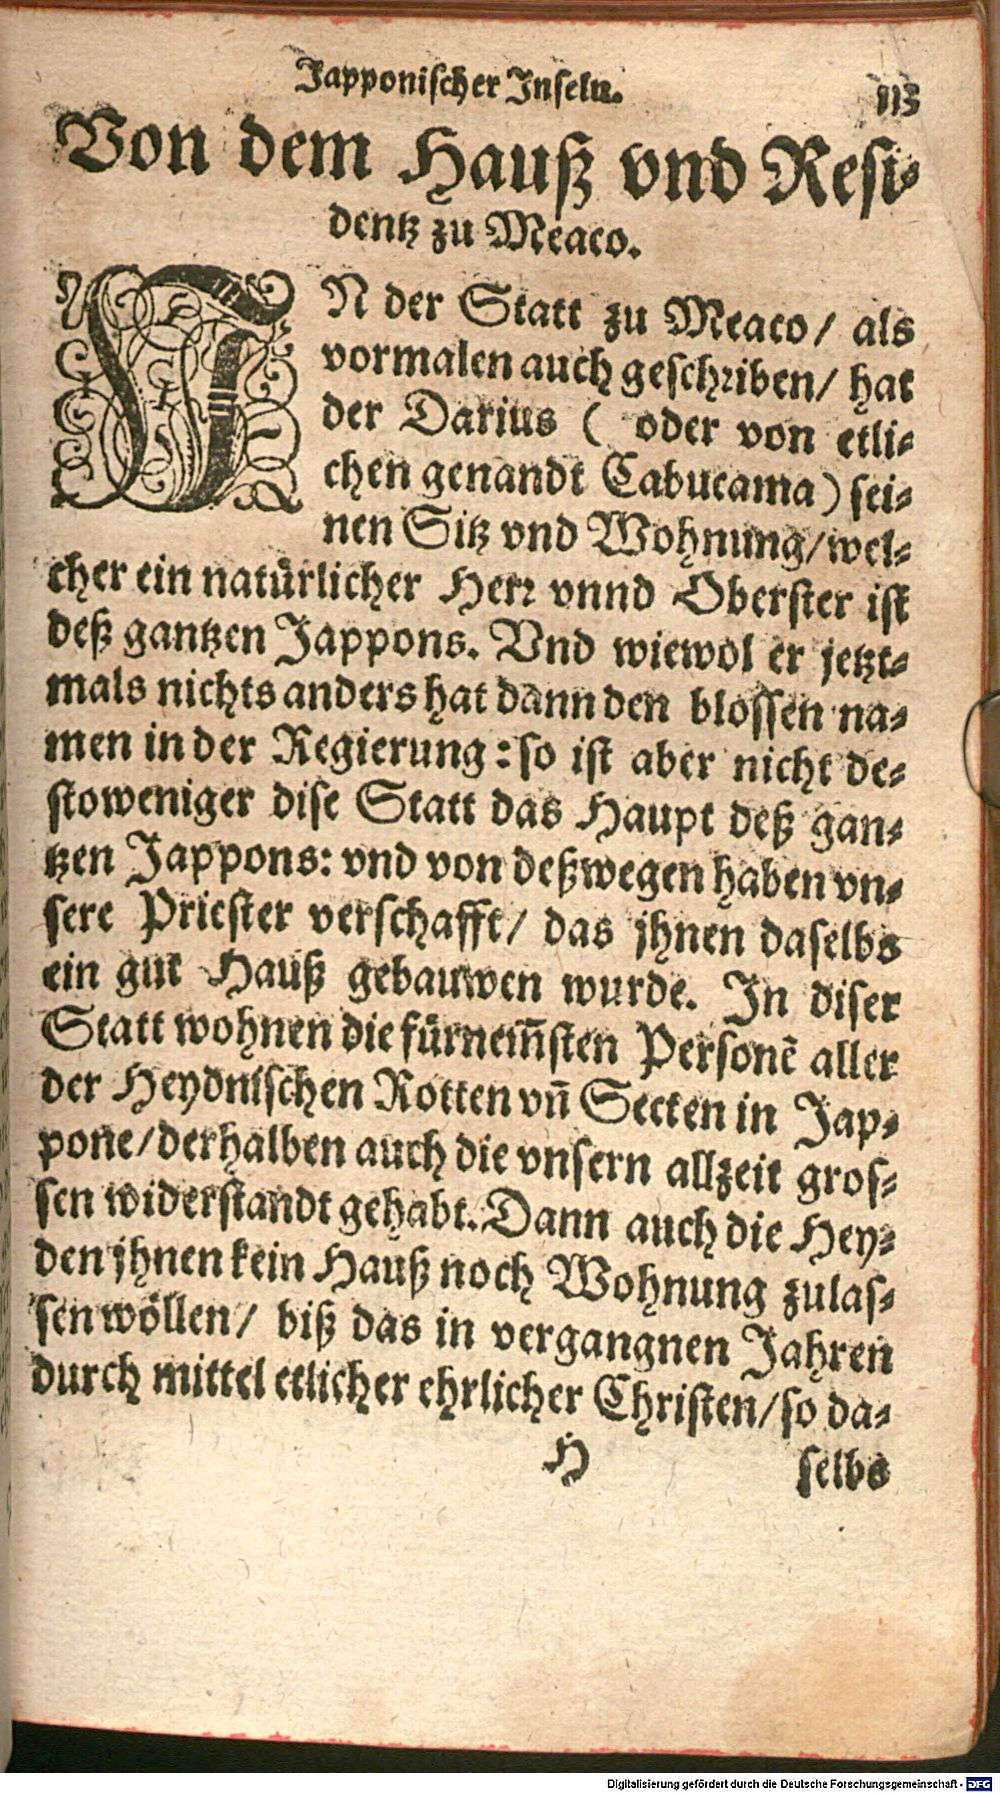 Japponischer Inseln.
113
Von dem Hauß vnd Resi-
dentz zu Meaco.
IN der Statt zu Meaco/ als
vormalen auch geschriben/ hat
der Darius ( oder von etli-
chen genandt Cabucama) sei-
nen Sitz vnd Wohnung/wel-
cher ein natürlicher Herr vnnd Oberster ist
deß gantzen Jappons. Vnd wiewol er jetzt-
mals nichts anders hat dann den blossen na-
men in der Regierung: so ist aber nicht de-
stoweniger dise Statt das Haupt deß gan-
tzen Jappons: vnd von deßwegen haben vn-
sere Priester verschafft/ das jhnen daselbs
ein gut Hauß gebauwen wurde. In diser
Statt wohnen die fürnem̃sten Personẽ aller
der Heydnischen Rotten vñ Secten in Jap-
pone/derhalben auch die vnsern allzeit gros-
sen widerstandt gehabt. Dann auch die Hey-
den jhnen kein Hauß noch Wohnung zulas-
sen wöllen/ biß das in vergangnen Jahren
durch mittel etlicher ehrlicher Christen/so da-
H
selbs
Digitalisierung gefördert durch die Deutsche Forschungsgemeinschaft - DFG